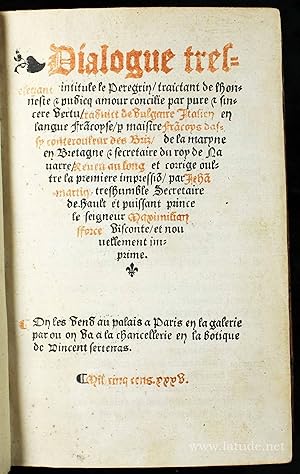 Dialogue tres-
elegant intitule le Peregrin/ traictant de lhon-
neste & pudicq amour concilie par pure & sin-
cere vertu/ traduit de vulgaire Italien en
langue Frãcoyse/ p maistre Frãcoys das-
sy conterouleur des Briz/ de la maryne
en Bretagne & secretaire du roy de Na
uarre/ Reueu au long et corrige oul-
tre la premiere impressiõ/ par Jehã
martin. treshumble Secretaire
de hault et puissant prince
le seigneur Maximilian
sforce Visconte/ et nou
uellement im-
prime.
On les vend au palais a Paris en la galerie
par ou on va a la chancellerie en la botique
de Vincent sertenas.
Mil cinq cens. xxxv.
www.latude.net